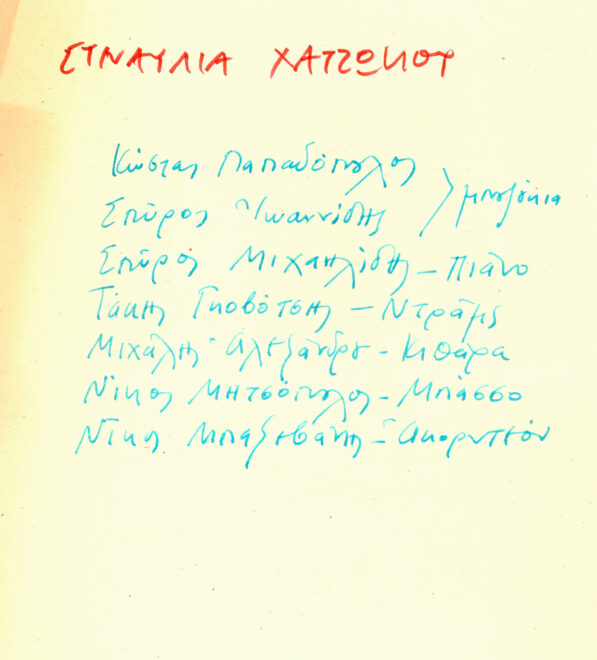 ΣΥΝΑΥΛΙΑ ΧΑΤΖΩΚΟΥ
Κώστας Παπαδόπουλος
Σπῦρος Ἰωαννίδης } μπουζούκια
Σπῦρος Μιχαηλίδης – Πιᾶνο
Τάκης Γκοβότσης – Ντράμς
Μιχάλης Ἀλεξάνδρου – Κιθάρα
Νίκος Μητσόπουλος – Μπάσσο
Νῖκος – Ἀκορντεόν